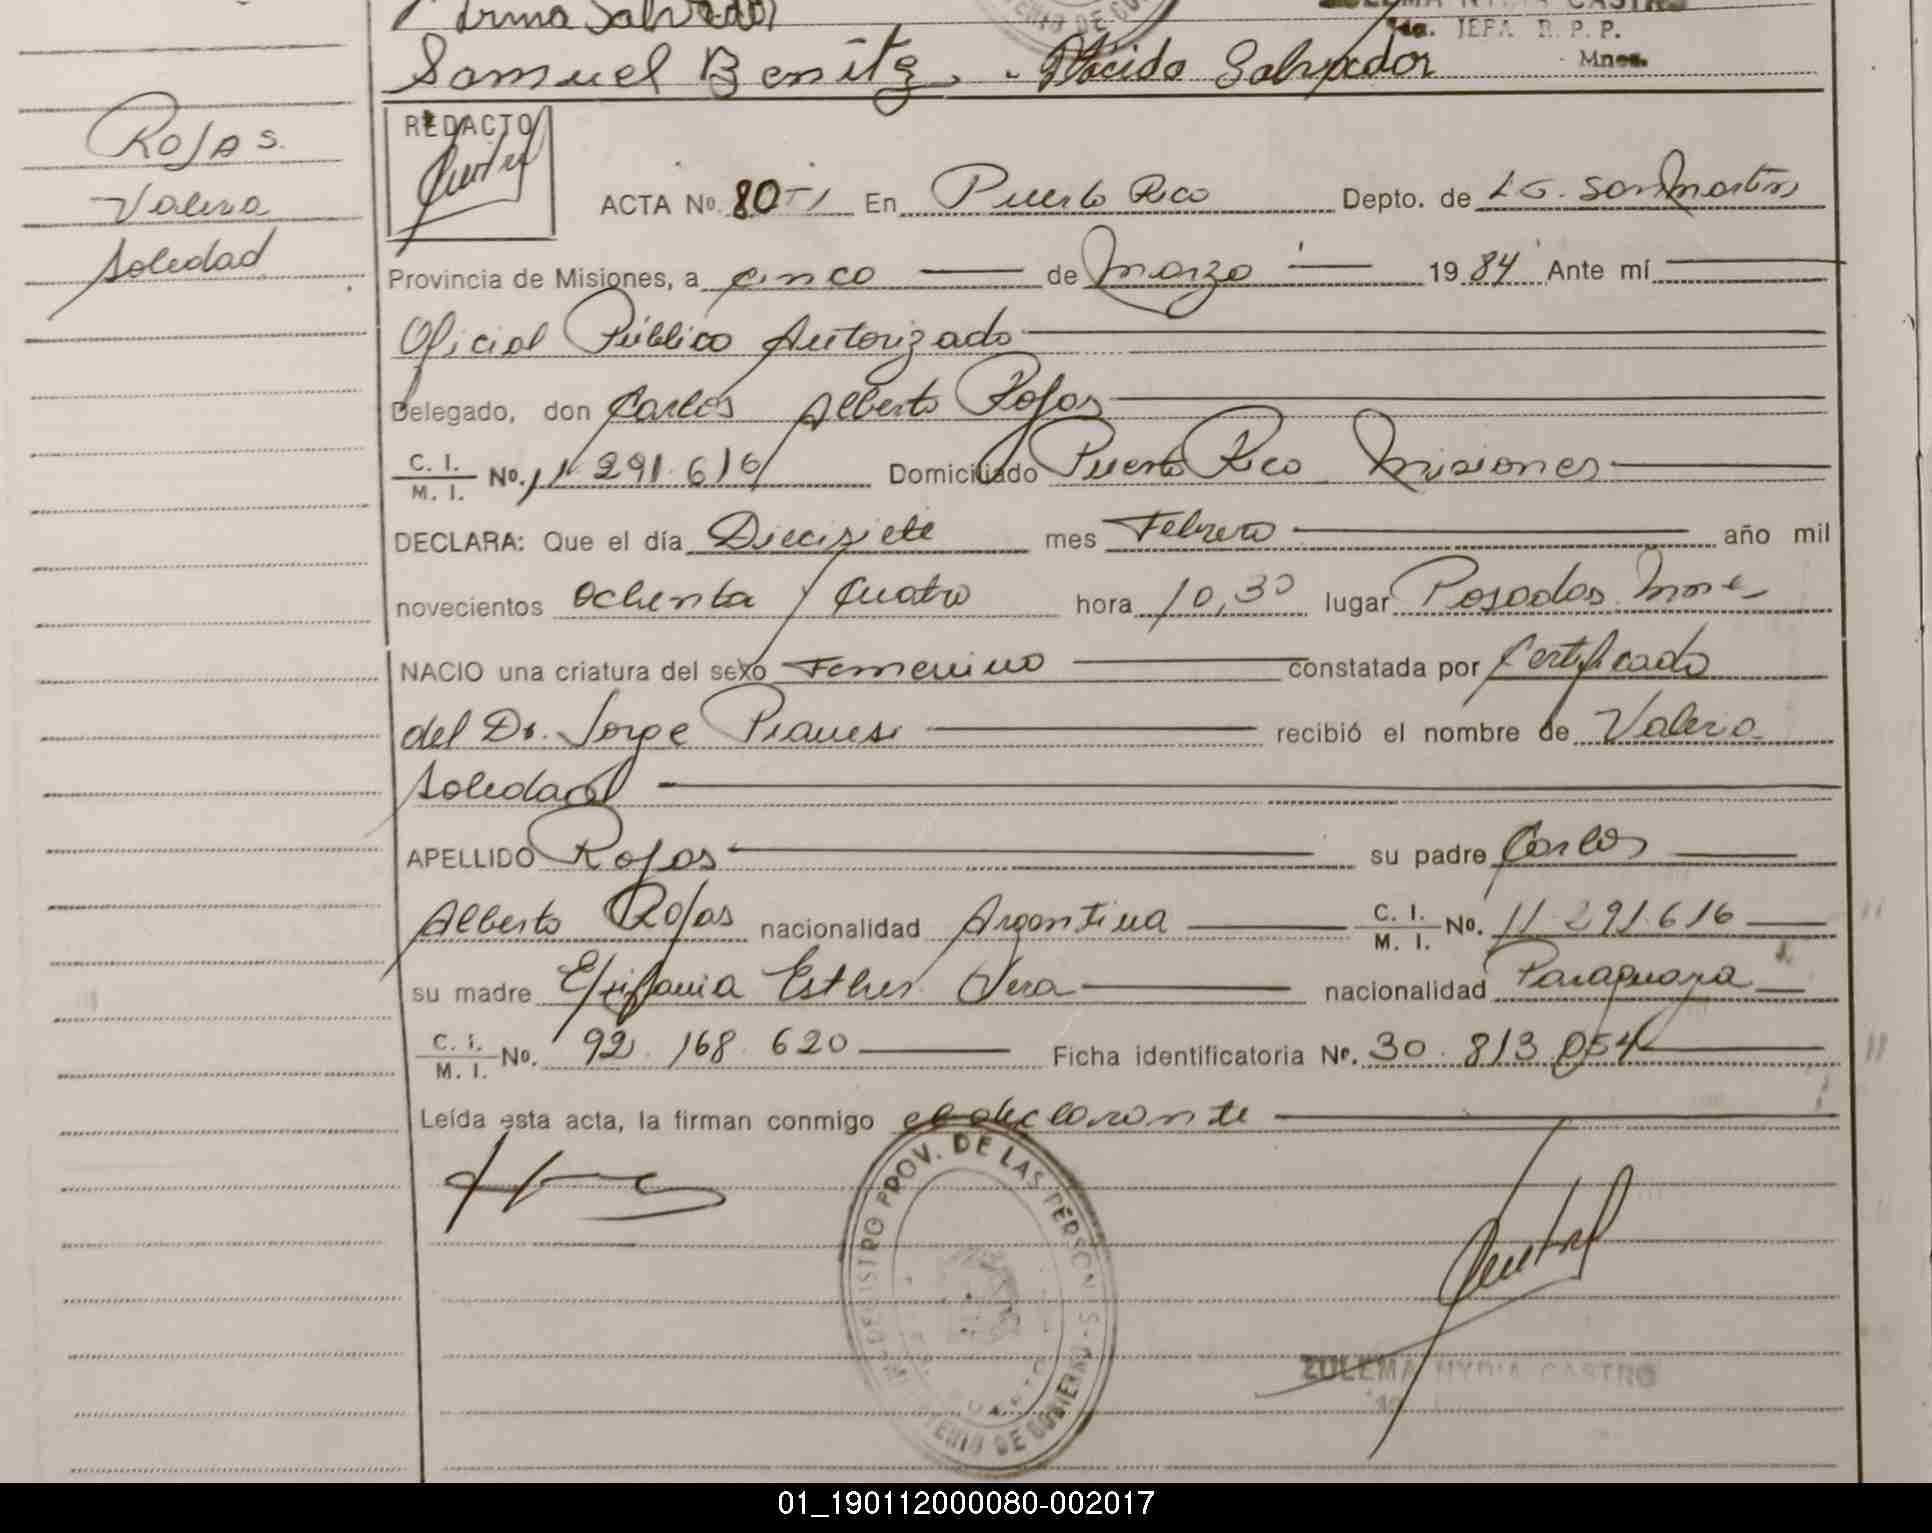 Irma Salvador
ZULEMA NYDIA CASTRO
JEFA R. P. P.
Mnes.
Samuel Benitez. - Plácido Salvador
Rojas
Valeria
Soledad
REDACTO
ACTA Nº 80-T1 En Puerto Rico Depto. de L.G. San Martin
Provincia de Misiones, a cinco de Marzo 1984 Ante mí
Oficial Público Autorizado
Delegado, don Carlos Alberto Rojas
C. I. / M. I. Nº. 11.291.616 Domiciliado Puerto Rico Misiones
DECLARA: Que el día Diecisiete mes Febrero año mil
novecientos ochenta y cuatro hora 10,30 lugar Posadas Mnes
NACIO una criatura del sexo Femenino constatada por Certificado
del Dr. Jorge Pianesi recibió el nombre de Valeria
Soledad
APELLIDO Rojas su padre Carlos
Alberto Rojas nacionalidad Argentina C. I. / M. I. Nº. 11.291.616
su madre Epifania Esther Vera nacionalidad Paraguaya
C. I. / M. I. Nº. 92.168.620 Ficha identificatoria Nº. 30.813.054
Leída esta acta, la firman conmigo el declarante
REGISTRO PROV. DE LAS PERSONAS
MINISTERIO DE GOBIERNO
ZULEMA NYDIA CASTRO
01_190112000080-002017